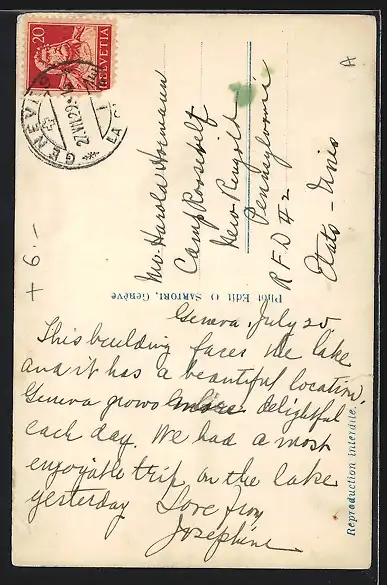 20
HELVETIA
GENÈVE
27.VII.29
LA
A
+ 6.-
Mr. Harold Hermann
Camp Roosevelt
New Ringold
Pennsylvania
R F D # 2
Etats-Unis
Phot Edit O SARTORI, Genève
Geneva, July 25
This building faces the lake
and it has a beautiful location.
Geneva grows more delightful
each day. We had a most
enjoyable trip on the lake
yesterday Love from
Josephine
Reproduction interdite.